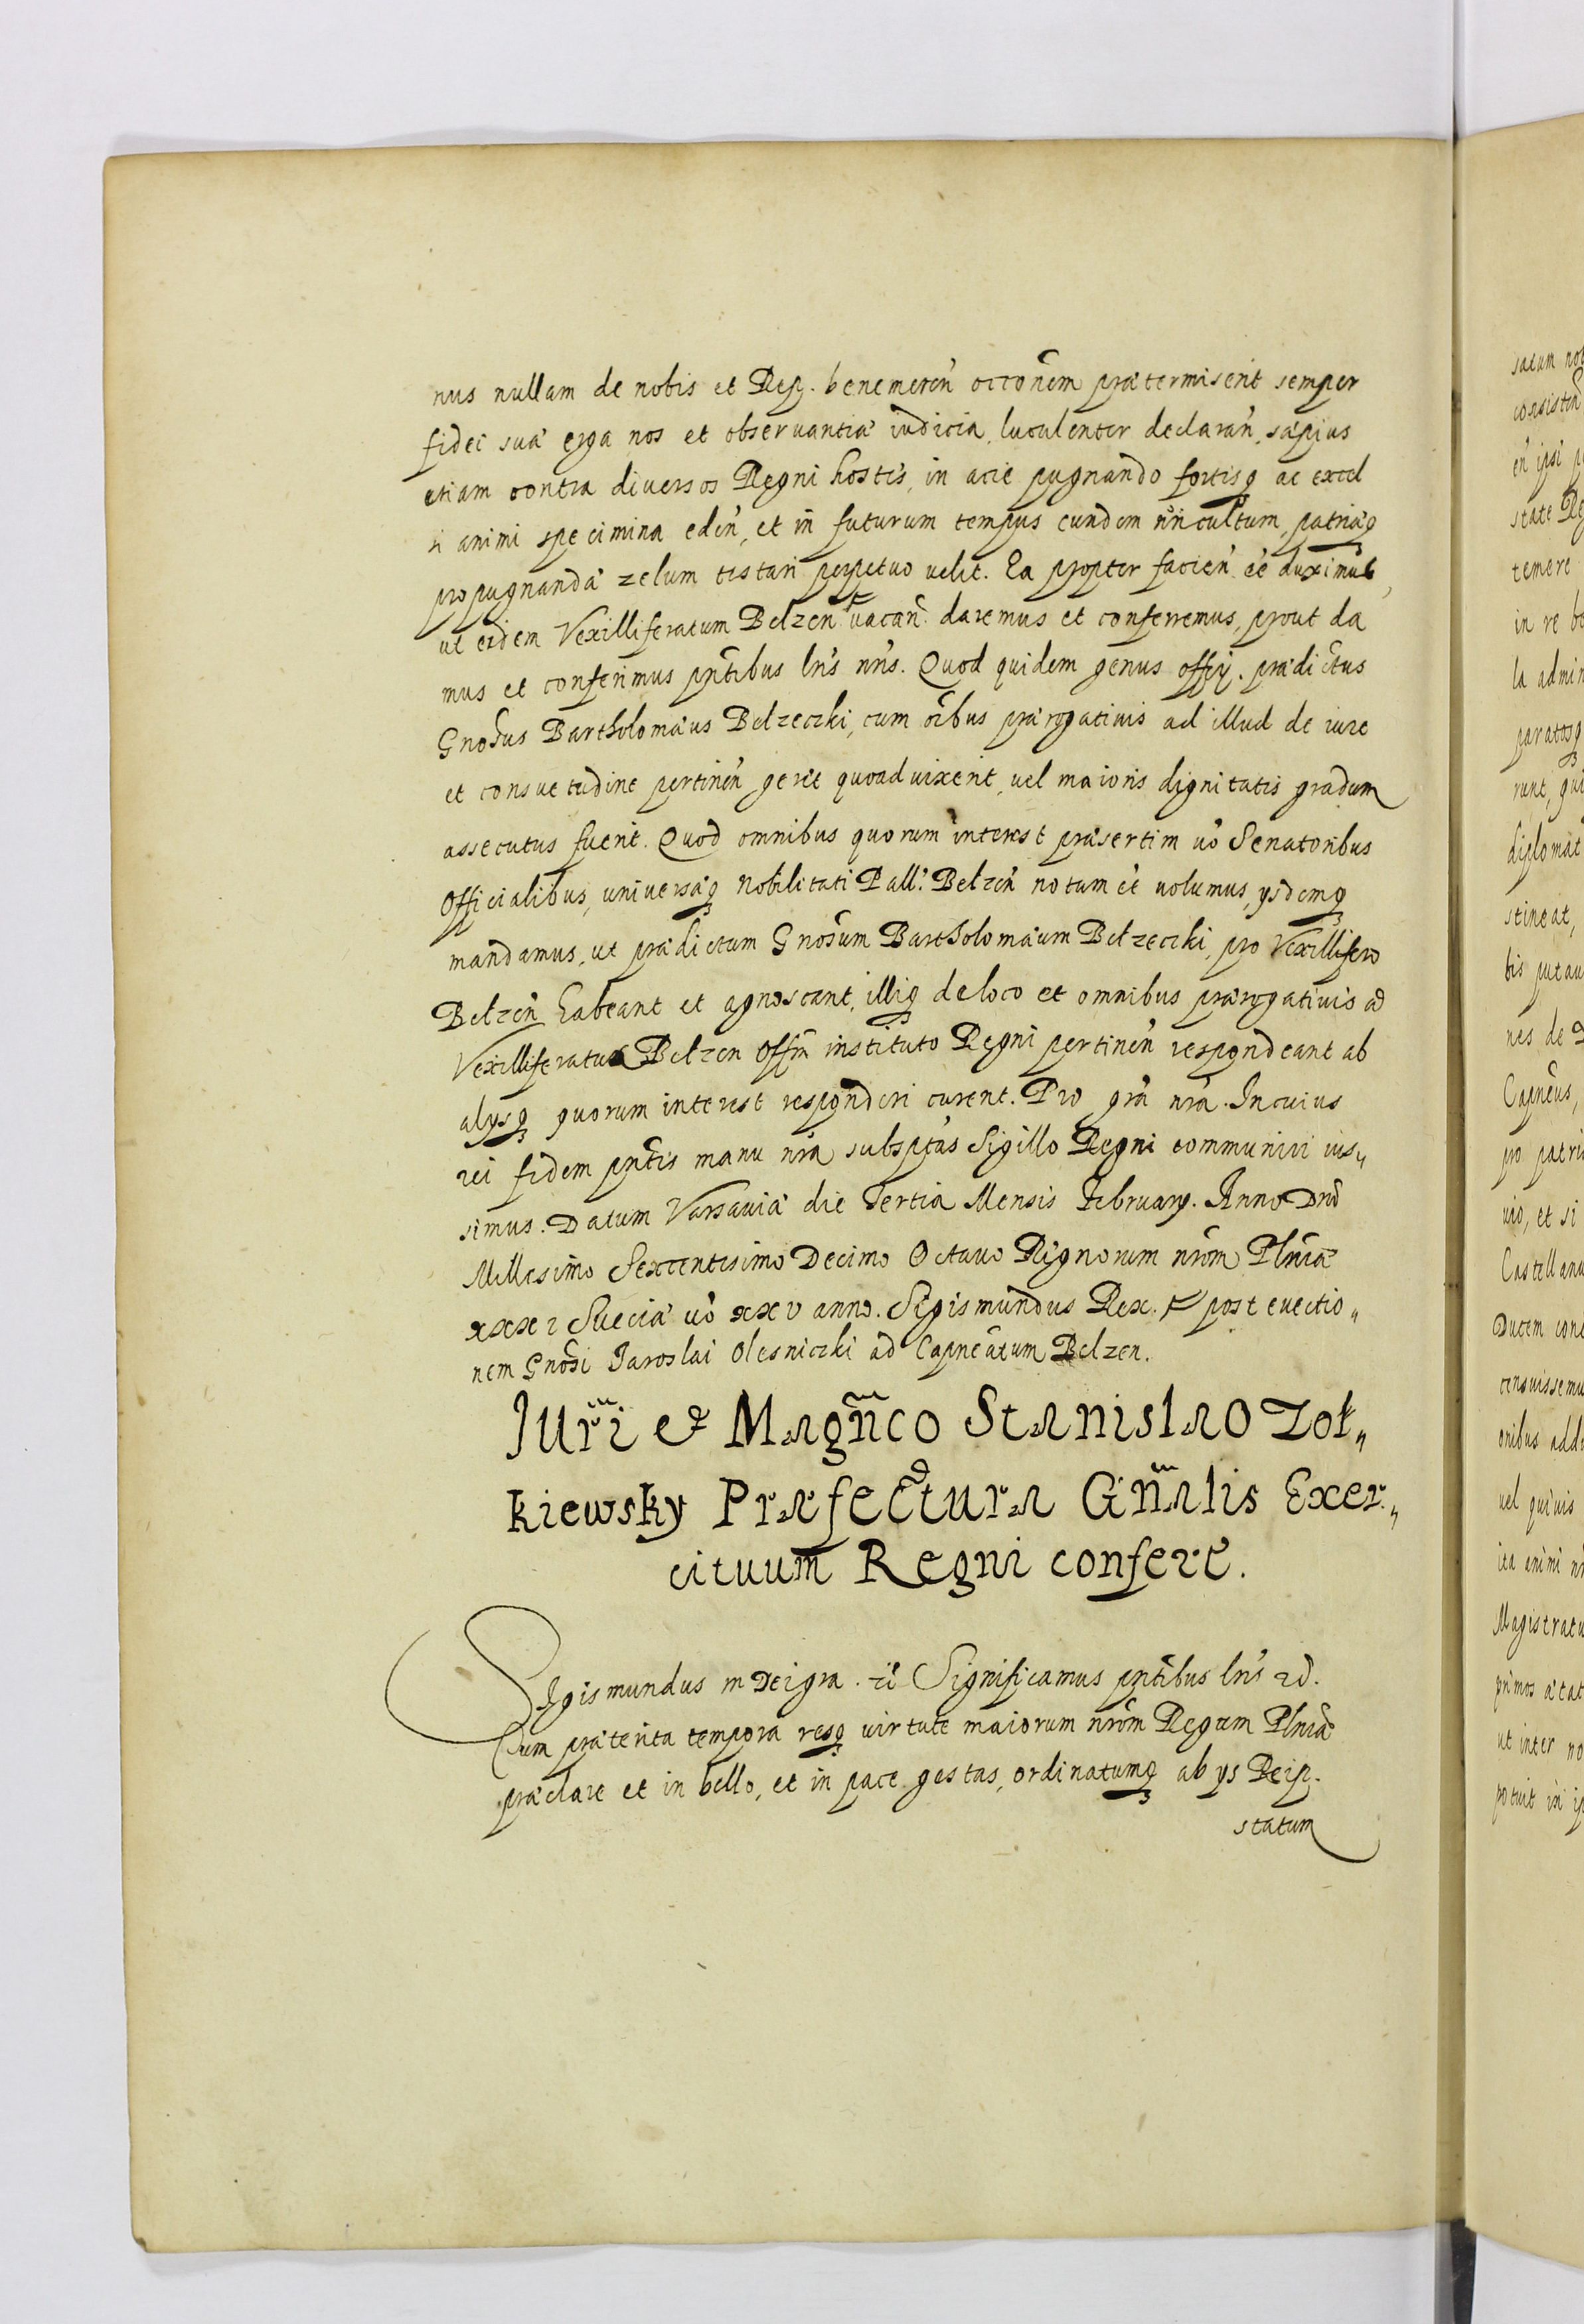 nus nullam de nobis et Rep. benemeren̄ occōnem prætermiserit semper
fidei suæ erga nos et observantiæ iudicia, luculenter declaran̄, sæpius
etiam contra diversos Regni hostes, in acie pugnando fortisq ac excel
si animi specimina eden̄, et in futurum tempus eundem n̄r̄i cultum, patriæq
propugnandæ zelum testari perpetuo velit. Ea propter facien̄ eē duximus,
ut eidem Vexilliferatum Belzen̄ vacan̄ daremus et conferremus, prout da
mus et conferimus pn̄tibus lr̄is nr̄is. Quod quidem genus offij. prædictus
Gnōsus Bartholomæus Belzeczki, cum oībus prærogativis ad illud de iure
et consuetudine pertinen̄ geret quoad vixerit, vel maioris dignitatis gradum
assecutus fuerit. Quod omnibus quorum interest præsertim uō Senatoribus
Officialibus, universæq Nobilitati Pall: Belzen̄ notum eē volumus, ysdemq
mandamus, ut prædictum Gnōsum Bartholomæum Belzeczki, pro Vexillifero
Belzen̄ habeant et agnoscant, illiq de loco et omnibus prærogativis ad
Vexilliferatus Belzen offm̄ instituto Regni pertinen̄ respondeant ab
alysq quorum interest responderi curent. Pro grā nrā. In cuius
rei fidem pn̄tis manu nrā subsptas Sigillo Regni communiri ius„
simus. Datum Varsaviæ die Tertia Mensis February. Anno Dnī
Millesimo Sexcentesimo Decimo Octavo Regnorum nrōm Plniæ
xxxi Sueciæ uō xxv anno. Sigismundus Rex. post evectio„
nem Gnōsi Jaroslai Olesniczki ad Capneātum Belzen.
Jur̄i et Magn̄co Stanislao Zoł„
kiewsky Præfectura Gn̄alis Exer„
cituum Regni confere.
Sigismundus III Dei gra. Significamus pn̄tibus lr̄is
Cum præterita tempora resq virtute maiorum nrōm Regum Plniæ
præclare et in bello, et in pace gestas, ordinatumq ab ys Reip.
statum